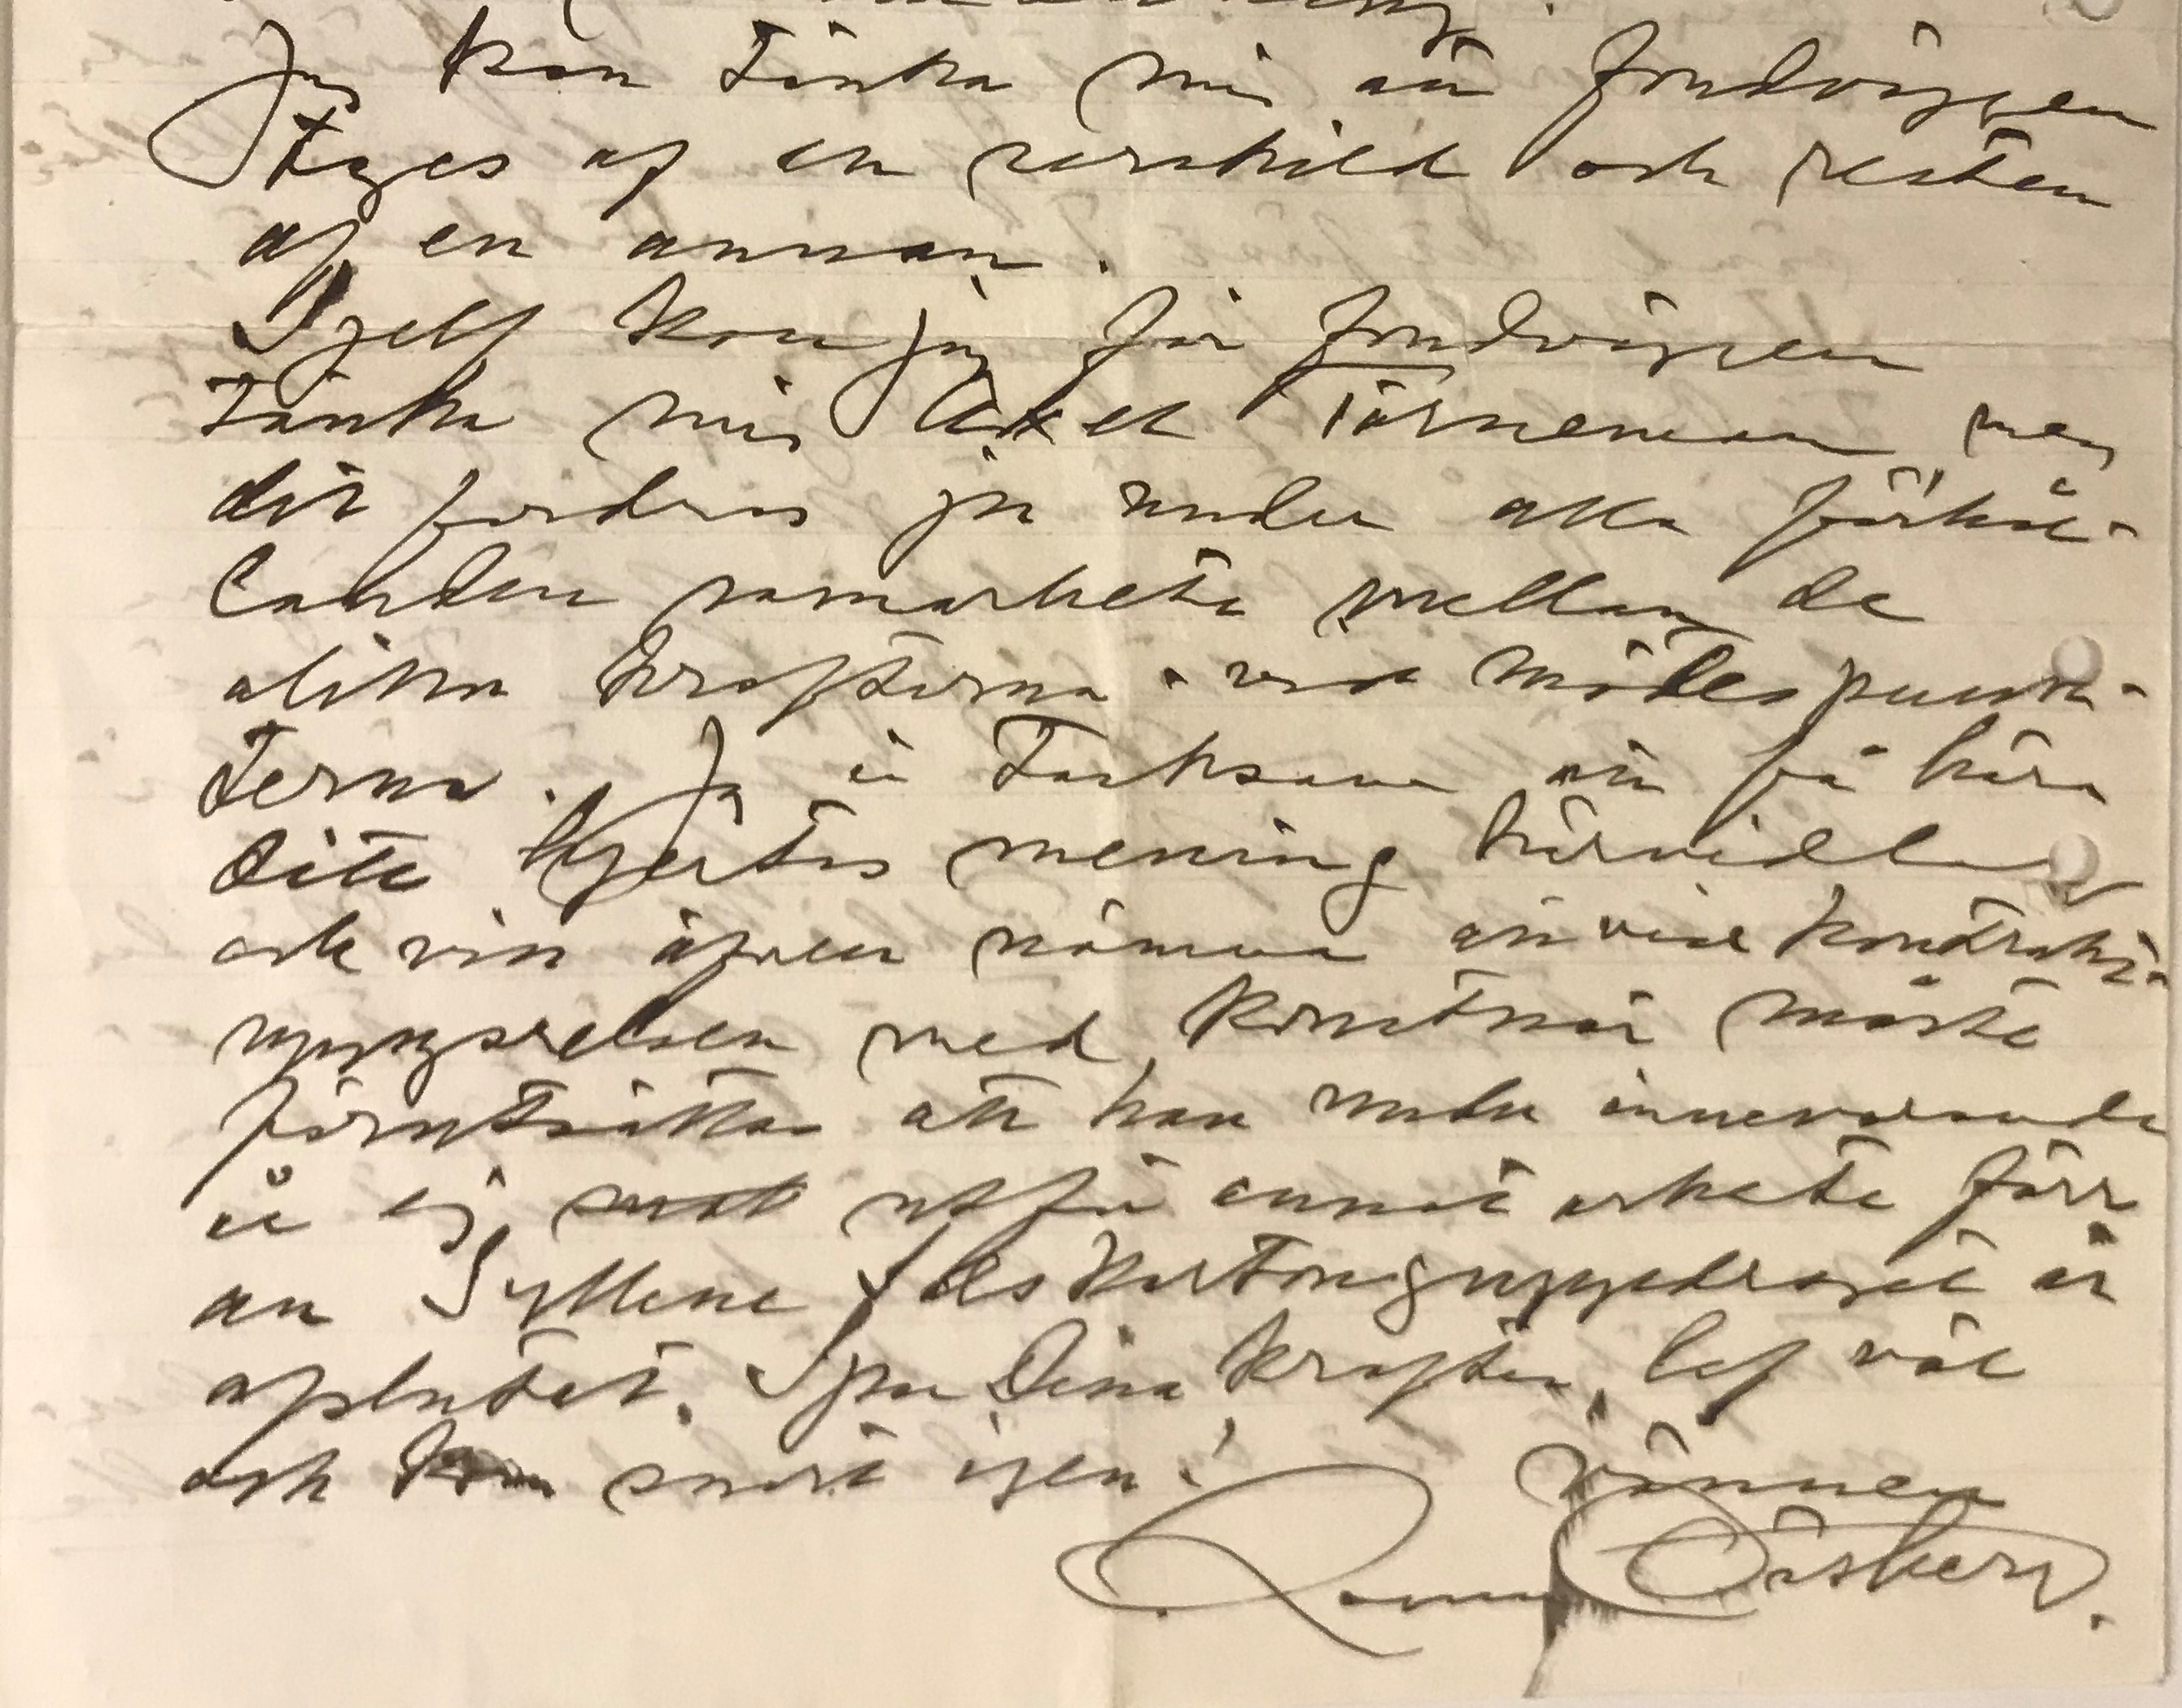 Jag kan tänka mig att fondväggen
tages af en särskild och resten
af en annan.
Sjelf kan jag för fondväggen
tänka mig Axel Törneman, men
det fordras ju under alla förhål-
landen samarbete mellan de
olika krafterna vid mötespunk-
terna. Jag är tacksam att få höra
Ditt hjertas mening härvidlag
och vill äfven nämna att vid kontrakts-
uppgörelsen med konstnär måste
förutsättas att han under innevarande
år ej utför annat arbete förr
än Gyllene Sals kartonguppdraget är
afslutat. Spar Dina krafter, lef väl
och kom snart igen!
Vännen
Ragnar Östberg.